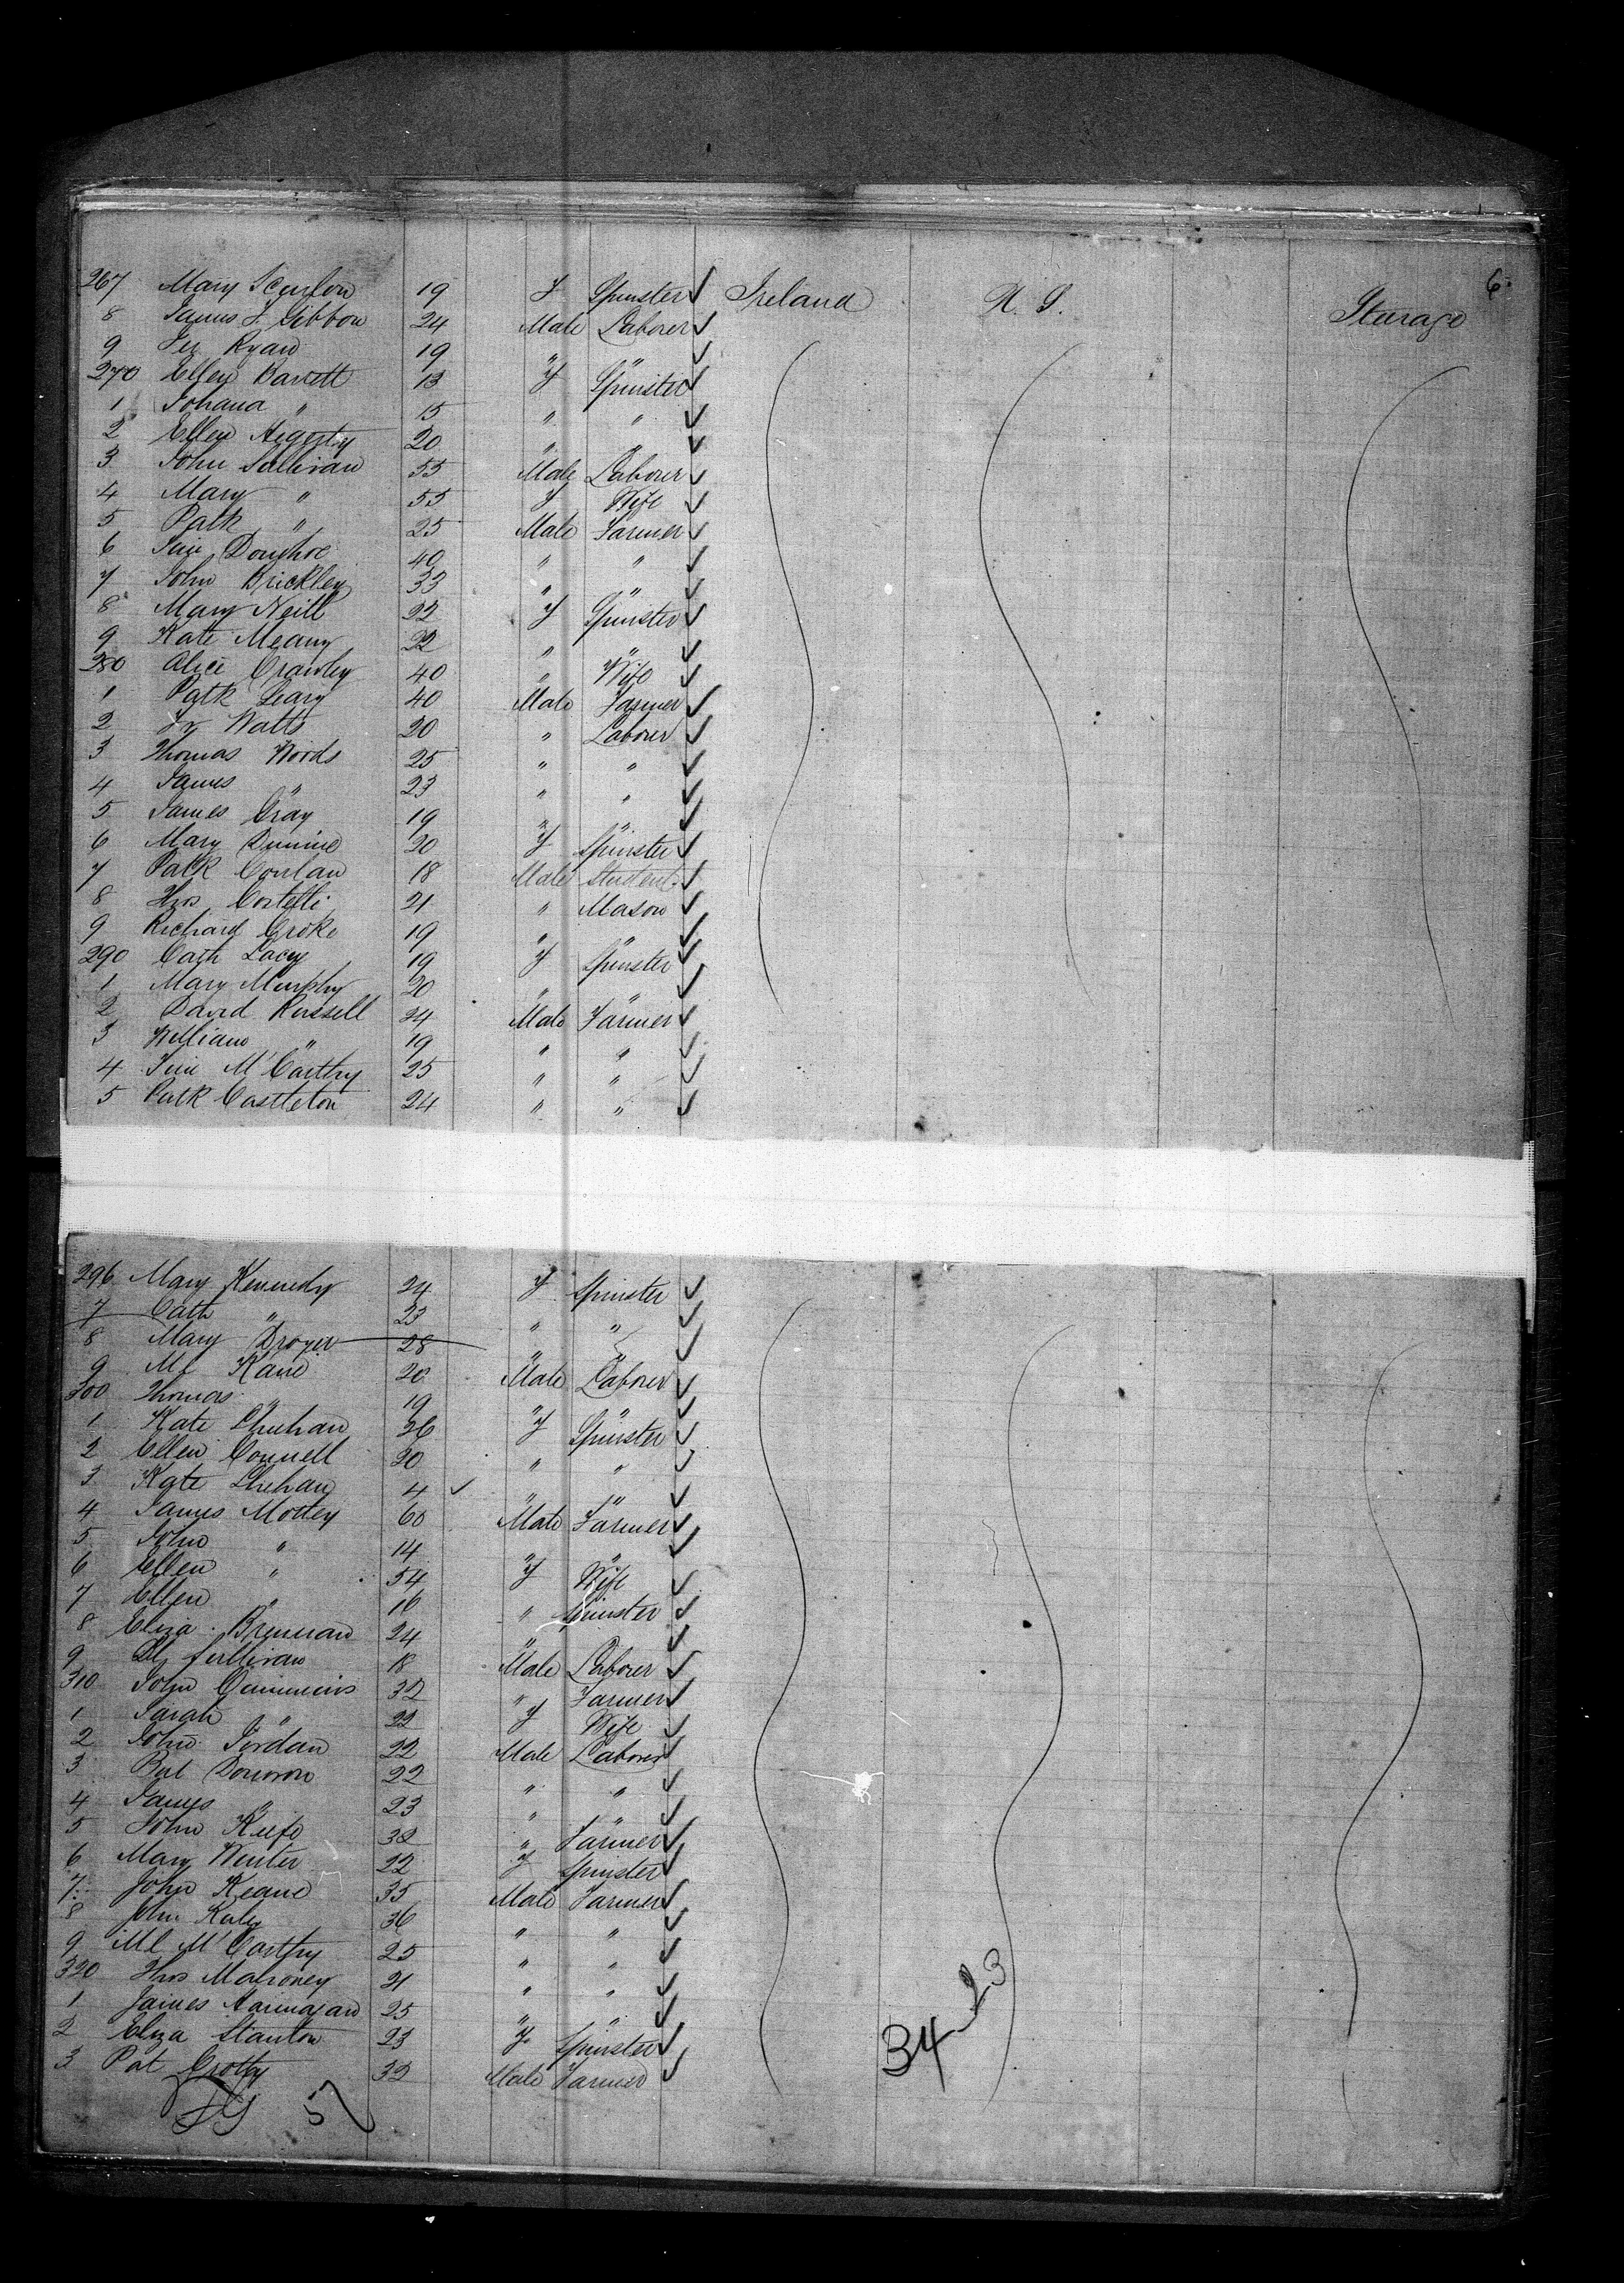 6
267 Mary Scanlon 19 F Spinster Ireland U. S. Steerage
8 James J. Gibbon 24 Male Laborer
9 Jer Ryan 19 " "
270 Ellen Barrett 13 F Spinster
1 Johana " 15 " "
2 Ellen Hegerty 20 " "
3 John Sullivan 55 Male Laborer
4 Mary " 55 F Wife
5 Patk " 25 Male Farmer
6 Tim Donghoe 40 " "
7 John Brickley 33 " "
8 Mary Neill 22 F Spinster
9 Kate Meany 22 " "
280 Alice Crawley 40 " Wife
1 Patk Leary 40 Male Farmer
2 Watts 20 " Laborer
3 Thomas Woods 25 " "
4 James " 23 " "
5 James Gray 19 " "
6 Mary Dunine 20 F Spinster
7 Patk Conlan 18 Male Student
8 Thos Costelli 21 " Mason
9 Richard Croke 19 " "
290 Cath Lacey 19 F Spinster
1 Mary Murphy 20 " "
2 David Russell 24 Male Farmer
3 William " 19 " "
4 Tim McCarthy 25 " "
5 Patk Castleton 24 " "
296 Mary Kennedy 24 F Spinster
7 Cath " 23 " "
8 Mary Droyer 28 " "
9 Ml Kane 20 Male Laborer
300 Thomas " 19 " "
1 Kate Shehan 26 F Spinster
2 Ellen Connell 20 " "
3 Kate Shehan 4 " "
4 James Mottey 60 Male Farmer
5 John " 14 " "
6 Ellen " 54 F Wife
7 Ellen " 16 " Spinster
8 Eliza Brennan 24 " "
9 Sullivan 18 Male Laborer
310 John Cummins 32 " Farmer
1 Sarah " 22 F Wife
2 John Jordan 22 Male Laborer
3 Bat Donovon 22 " "
4 James " 23 " "
5 John Keefe 32 " Farmer
6 Mary Winter 22 F Spinster
7 John Keane 35 Male Farmer
8 John Kaley 36 " "
9 Ml McCarthy 25 " "
320 Thos Mahoney 21 " "
1 James 25 " "
2 Eliza Stanton 23 F Spinster
3 Pat Crotty 32 Male Farmer
34 23
57